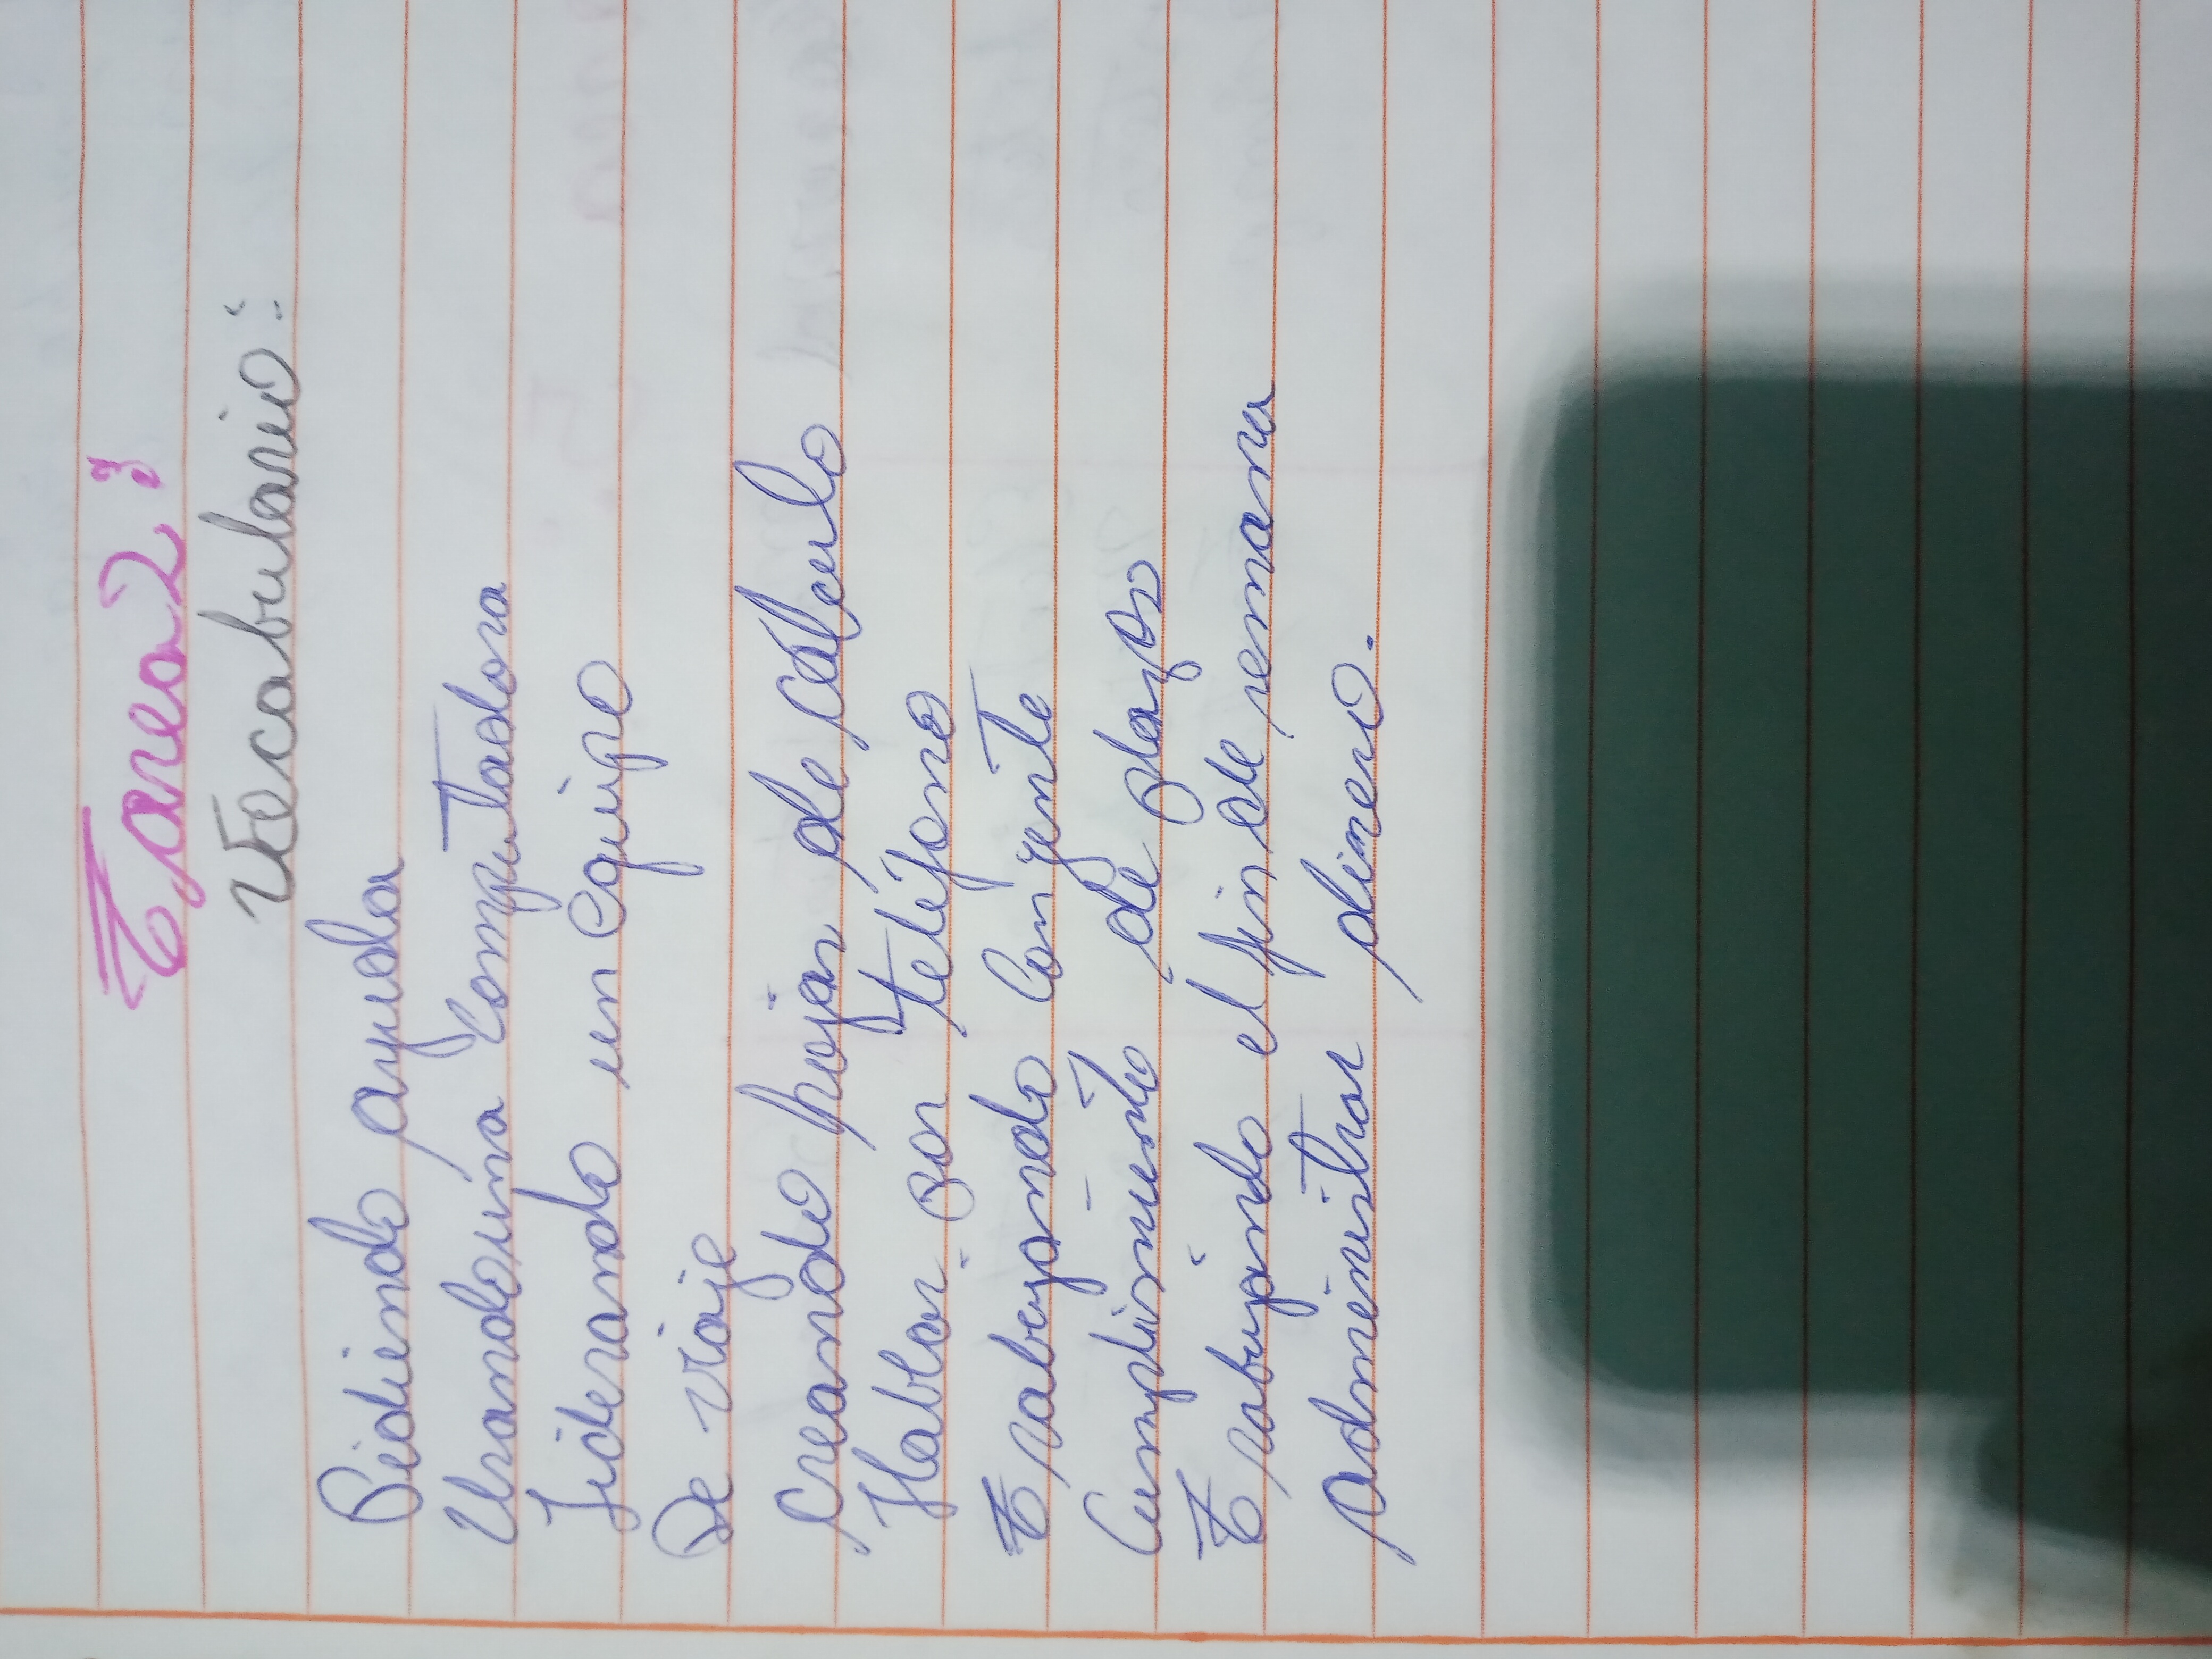 Tarea 2:
Vocabulario:
Pidiendo ayuda
Usando una Computadora
Liderando un Equipo
De viaje
Creando hojas de cálculo
Hablar por teléfono
Trabajando Conjente
Cumplimiento de plazo
Trabajando el fin de semana
Administrar dinero.